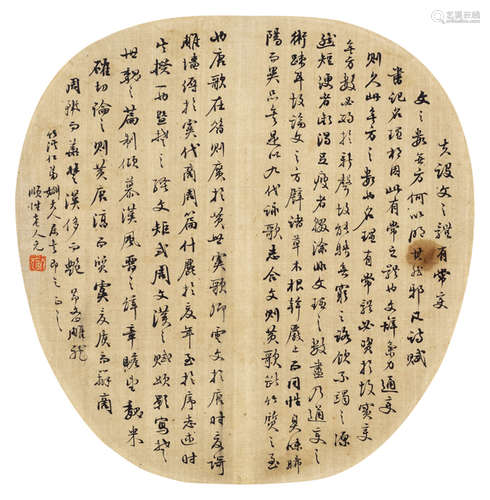 夫設文之體有常變
文之數無方何以明其然邪凡詩賦
書記名理相因此有常之體也文辭氣力通變
則久此無方之數也名理有常體必資於故實變
無方數必酌於新聲故能騁無窮之路飲不竭之源
然短者銜渴者輟涂非文理之數盡乃通變之
術疎耳故論文之方譬諸草木根幹麗土而同性臭味晞
陽而異品矣是以九代詠歌志合文則黃歌斷竹質之至
也唐歌在昔則廣於黃世虞歌卿雲文於唐時夏歌
雕墻縟於虞代商周篇什麗於夏年至於序志述時
其揆一也暨楚之騷文矩式周人漢之賦頌影寫楚
世魏之篇制顧慕漢風晉之辭章瞻望魏采
確切論之則黃唐淳而質虞夏質而辨商
周麗而雅楚漢侈而艷 節右雕龍
仁弟姻大人屬書即正之
順性老人元